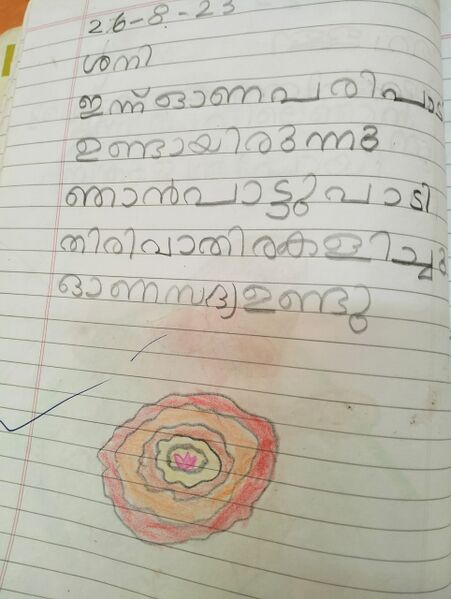 26-8-23
ശനി
ഇന്ന് ഓണപരിപാടി
ഉണ്ടായിരുന്നു
ഞാൻ പാട്ടു പാടി
തിരിവാതിരകളിച്ചു
ഓണസദ്യ ഉണ്ടു